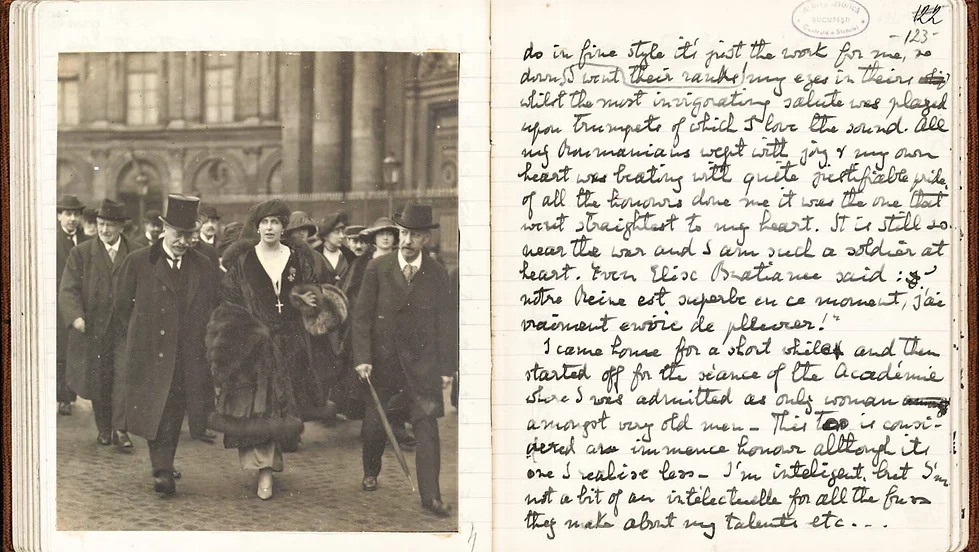 122
-123-
BUCUREȘTI
do in fine style it's just the work for me, so
down I went their ranks my eyes in theirs
whilst the most invigorating salute was played
upon trumpets of which I love the sound. All
my Roumanians wept with joy & my own
heart was beating with quite justifiable pride,
of all the honours done me it was the one that
went straightest to my heart. It is still so
near the war and I am such a soldier at
heart. Even Elise Bratianu said :
notre Reine est superbe en ce moment, j'ai
vraiment envie de pleurer!"
I came home for a short while and then
started off for the seance of the Académie
where I was admitted as only woman
amongst very old men – This too is consi-
dered an immence honour although its
one I realise less – I'm inteligent, but I'm
not a bit of an intelectuelle for all the fuss
they make about my talents etc...